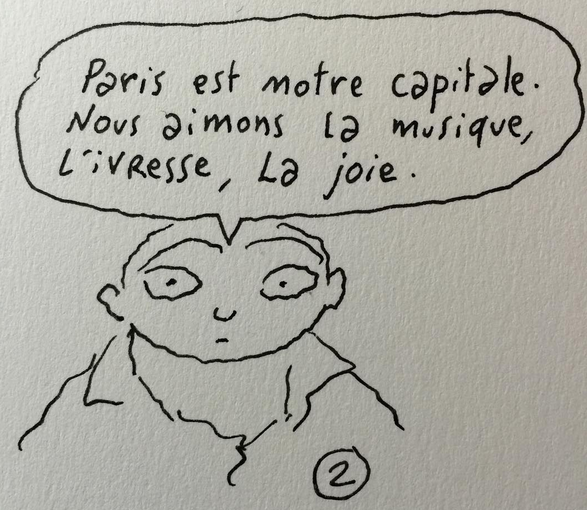 Paris est notre capitale.
Nous aimons la musique,
L'ivresse, La joie.
2